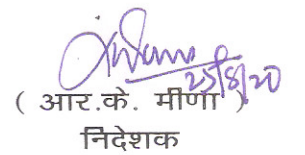 25/8/20
( आर.के. मीणा )
निदेशक